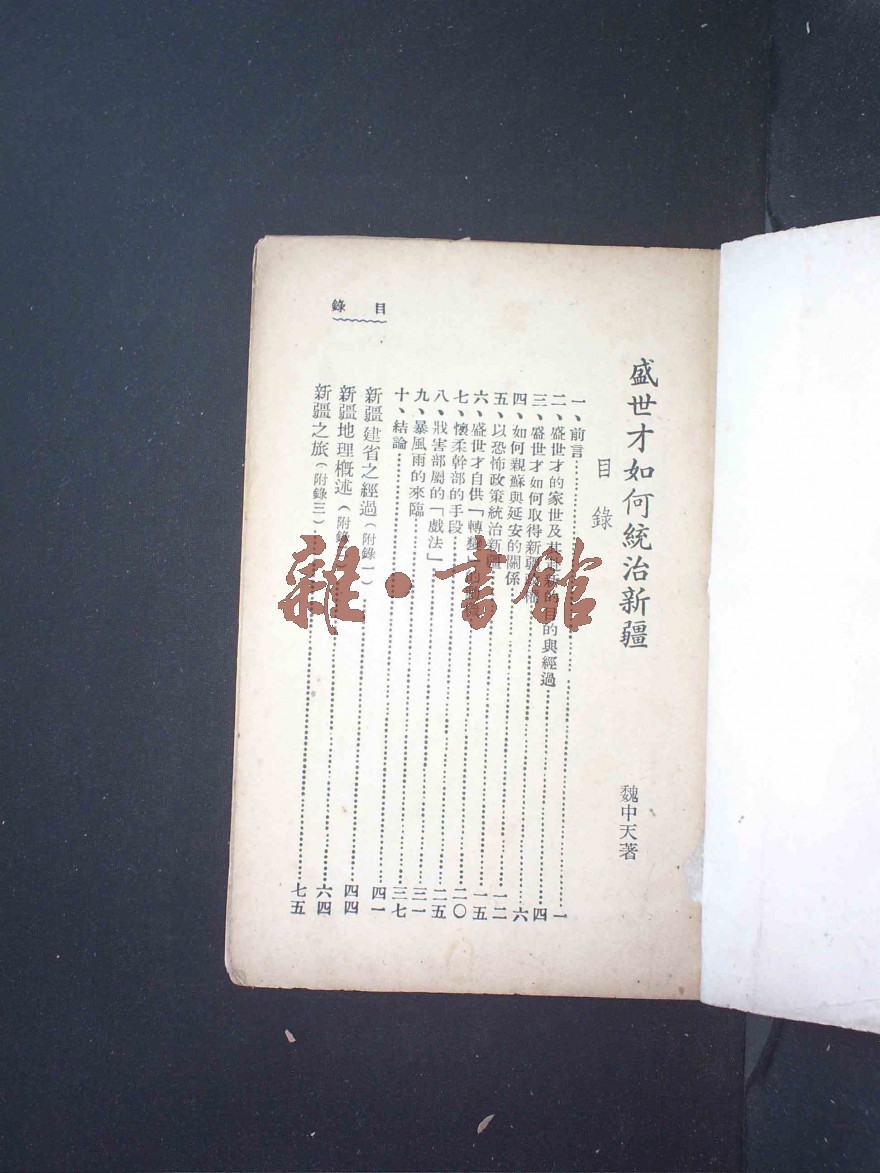 盛世才如何統治新疆
魏中天著
目錄
一、前言……一
二、盛世才的家世及其赴新的目的與經過……四
三、盛世才如何取得新疆政權……六
四、如何親蘇與延安的關係……一二
五、以恐怖政策統治新疆……一五
六、盛世才自供「轉變」的……二〇
七、懷柔幹部的手段……二五
八、戕害部屬的「戲法」……三一
九、暴風雨的來臨……三七
十、結論……四一
新疆建省之經過(附錄一)……四四
新疆地理概述(附錄二)……六四
新疆之旅(附錄三)……七五
目錄
雜·書館